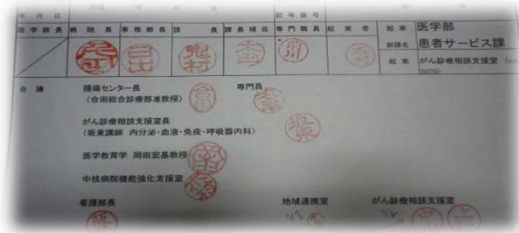 年 月 日
記号番号
医学部長 病院長 事務部長 課長 課長補佐 専門職員 起案者 起案 医学部
部課名 患者サービス課
起案 がん診療相談支援室
合議 腫瘍センター長 専門員
(合田総合診療部准教授)
がん診療相談支援室長
(坂東講師 内分泌・血液・免疫・呼吸器内科)
医学教育学 岡田宏基教授
中核病院機能強化支援室
看護部長 地域連携室 がん診療相談支援室